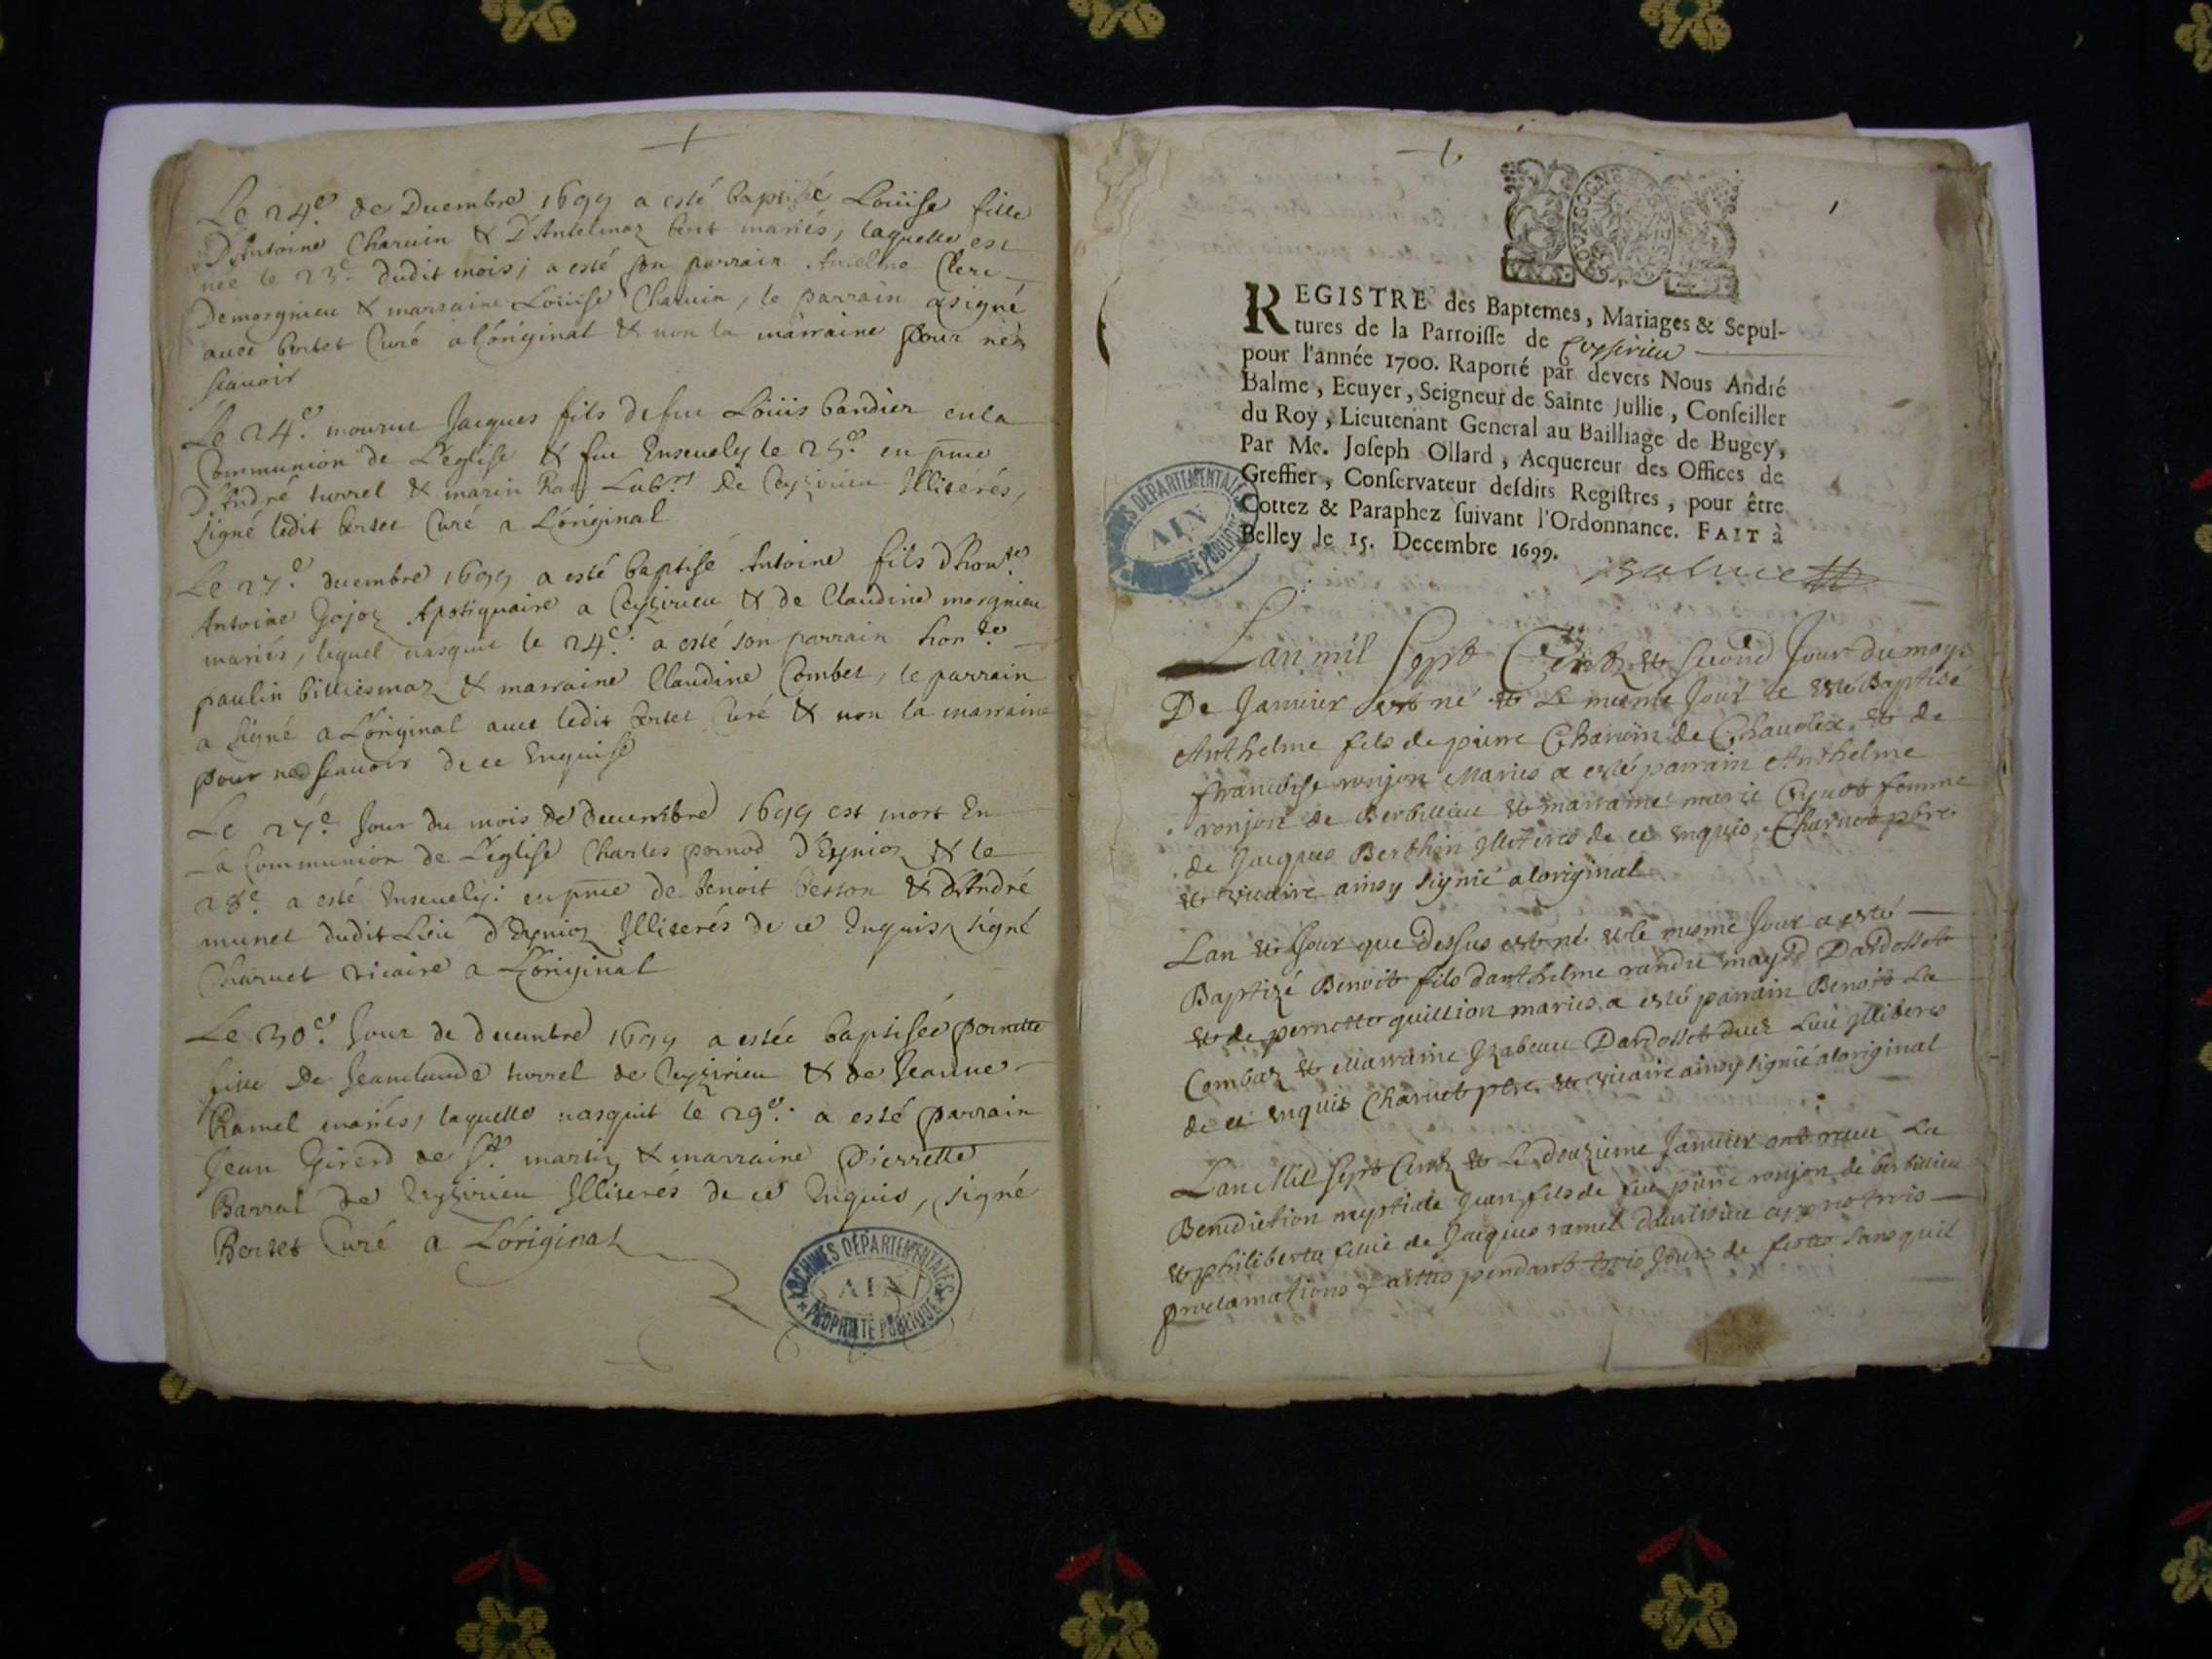 Le 24e. de Decembre 1699 a esté baptisée Loüise fille
D'Antoine Charuin & D'Antelmaz bert mariés, laquelle est
neé le 23e. dudit mois; a esté son parrain Anselme Clerc
Demorgnieu & marraine Loüise Charuin, le parrain a signé
auec bertet Curé a L'original & non la marraine pour ne
scauoir
Le 24e. mourut Jacques fils de feu Loüis bandier en la
Communion de L'eglise & fut Enseuely le 25e. en pnce
D'André turrel & marin Labrs De Ceyzirieu Illiterés,
signé ledit bertet Curé a L'original
Le 27e. decembre 1699 a esté baptisé Antoine fils d'honte
Antoine Gojoz Apotiquaire a Ceyzirieu & de Claudine morgnieu
mariés, lequel nasquit le 24e. a esté son parrain honte.
paulin billiesmaz & marraine Claudine Combet, le parrain
a signé a L'original auec ledit bertet Curé & non la marraine
pour ne scauoir de ce Enquise
Le 27e. Jour du mois de decembre 1699 est mort En
la Communion de L'eglise Charles pernod D'Egnioz & le
28e. a esté Enseuely: en pnce de benoit besson & d'André
munet dudit Lieu d'Egnioz Illiterés de ce Enquis, signé
Charuet vicaire a L'original
Le 30e. Jour de decembre 1699 a estée baptisée pernette
fille De Jeanclaude turrel de Ceyzirieu & de Jeanne
Ramel mariés, laquelle nasquit le 29e. a esté parrain
Jean Girerd de St. martin & marraine Pierrette
Barral de Ceyzirieu Illiterés de ce Enquis, signé
Bertet Curé a L'original
ARCHIVES DÉPARTEMENTALES
AIN
PROPRIÉTÉ PUBLIQUE
1
BOURGOGNE
REGISTRE des Baptemes, Mariages & Sepul-
tures de la Parroisse de Ceyssirieu
pour l'année 1700. Raporté par devers Nous André
Balme, Ecuyer, Seigneur de Sainte Jullie, Conseiller
du Roy, Lieutenant General au Bailliage de Bugey,
Par Me. Joseph Ollard, Acquereur des Offices de
Greffier, Conservateur desdits Registres, pour être
Cottez & Paraphez suivant l'Ordonnance. FAIT à
Belley le 15. Decembre 1699.
Balme
ARCHIVES DÉPARTEMENTALES
AIN
PROPRIÉTÉ PUBLIQUE
Lan mil Sept Centz et second Jour du moys
De Januier est né et Le mesme Jour a esté Baptisé
Anthelme fils de pierre Charuin de Chauoley et de
francoise ronjon Maries a esté parrain Anthelme
ronjon de Berbillieu et marraine marie femme
de Jacques Berthin Illiteres de ce enquis Charuet pbre
et vicaire ainsy signié a loriginal
Lan et Jour que Dessus est né et le mesme Jour a esté
Baptizé Benoit fils danthelme Dardosset
et de pernette quillion maries a esté parrain Benoit La
Combaz et Marraine Izabeau Dardosset dud Lieu Illiteres
de ce enquis Charuet pbre et vicaire ainsy signié a loriginal
Lan Mil Sept Centz et Le douzieme Januier ont receu La
Benediction nuptiale Jean fils de feu pierre ronjon de berbillieu
et philiberte fillie de Jacques ramel apres trois
proclamations faittes pendant trois Jours de festes sans quil